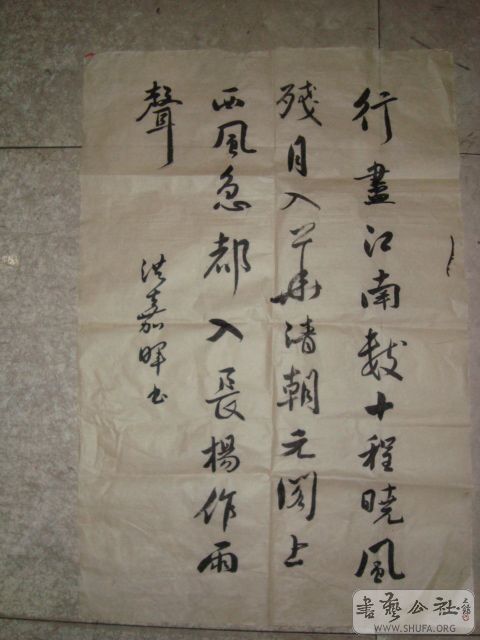 行盡江南数十程晓風
残月入華清朝元阁上
西風急都入長楊作雨
聲
洪嘉暉书
書藝公社
WWW.SHUFA.ORG